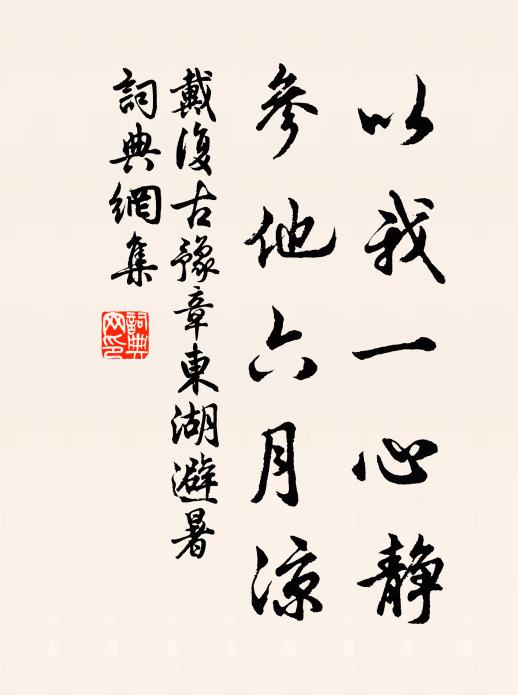 以我一心静
參他六月涼
戴復古豫章東湖避暑
詞典網集
詞典
网印